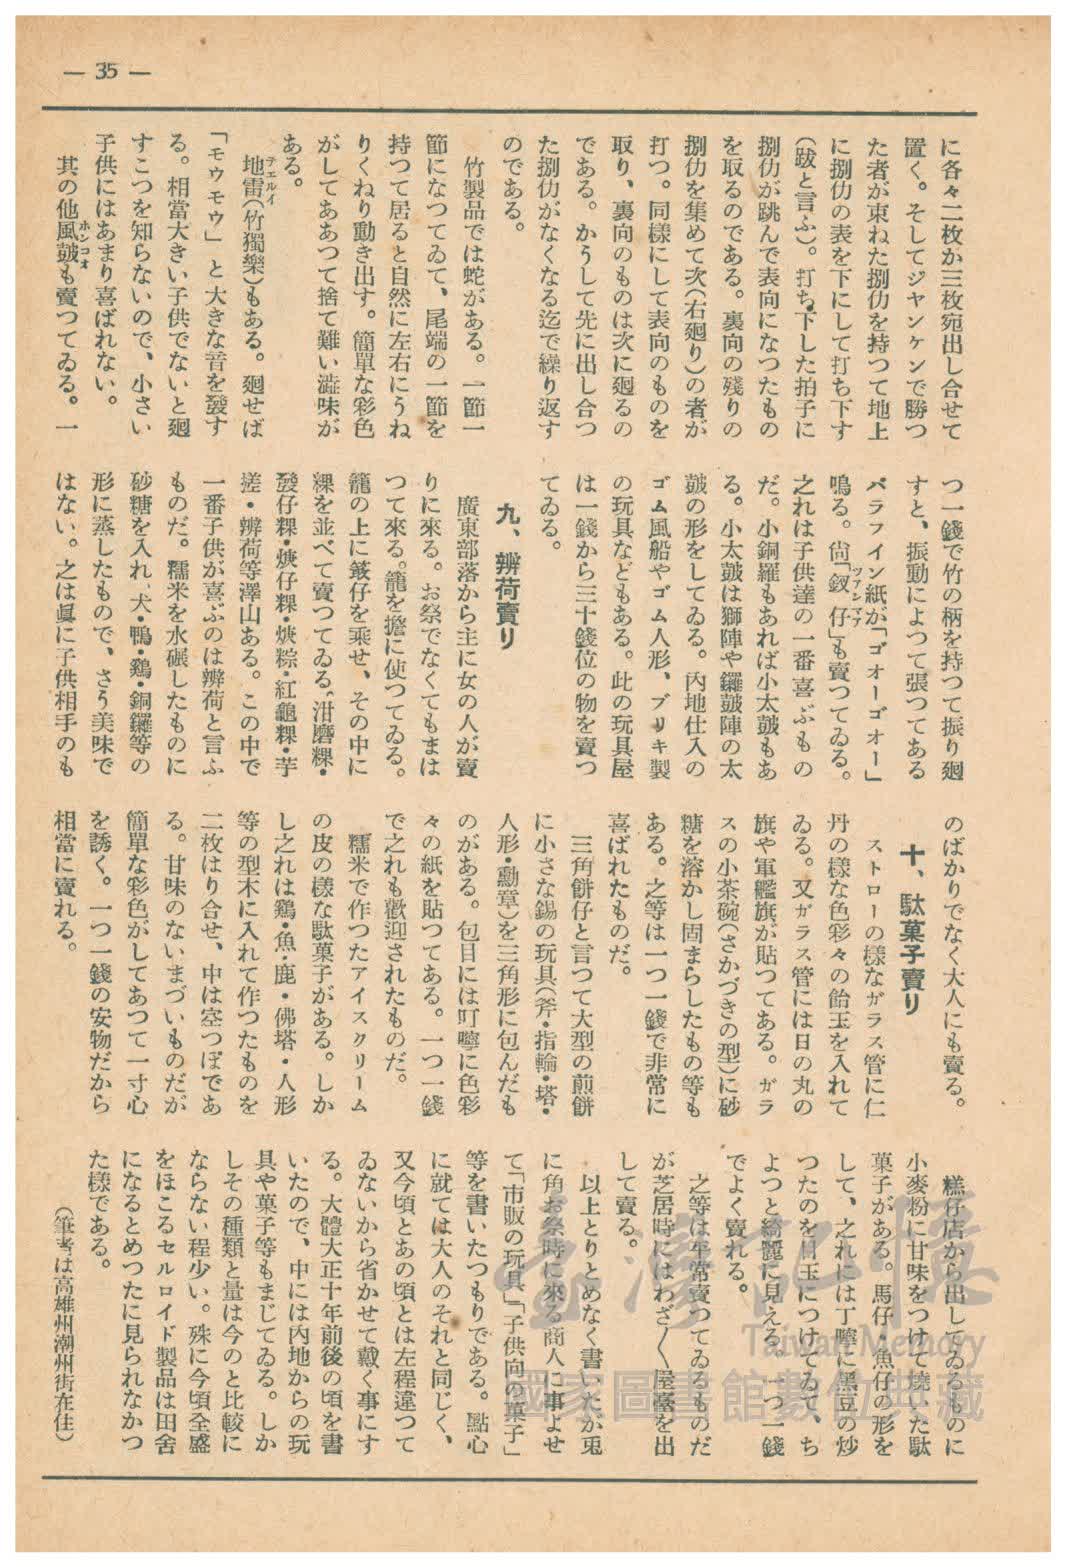 — 35 —
に各々二枚か三枚宛出し合せて
置く。そしてジヤンケンで勝つ
た者が束ねた捌仂を持つて地上
に捌仂の表を下にして打ち下す
(跋と言ふ)。打ち下した拍子に
捌仂が跳んで表向になつたもの
を取るのである。裏向の殘りの
捌仂を集めて次(右廻り)の者が
打つ。同樣にして表向のものを
取り、裏向のものは次に廻るの
である。かうして先に出し合つ
た捌仂がなくなる迄で繰り返す
のである。
竹製品では蛇がある。一節一
節になつてゐて、尾端の一節を
持つて居ると自然に左右にうね
りくねり動き出す。簡單な彩色
がしてああつて捨て難い澁味が
ある。
地雷(竹獨樂)もある。廻せば
テエルイ
「モウモウ」と大きな音を發す
る。相當大きい子供でないと廻
すこつを知らないので、小さい
子供にはあまり喜ばれない。
其の他風皷も賣つてゐる。一
ホンコオ
つ一錢で竹の柄を持つて振り廻
すと、振動によつて張つてある
パラフイン紙が「ゴオーゴオー」
鳴る。尙「釵仔」も賣つてゐる。
ツアンマア
之れは子供達の一番喜ぶもの
だ。小銅羅もあれば小太皷もあ
る。小太皷は獅陣や鑼皷陣の太
皷の形をしてゐる。內地仕入の
ゴム風船やゴム人形、ブリキ製
の玩具などもある。此の玩具屋
は一錢から三十錢位の物を賣つ
てゐる。
九、辨荷賣り
廣東部落から主に女の人が賣
りに來る。お祭でなくてもまは
つて來る。籠を擔に使つてゐる。
籠の上に簸仔を乘せ、その中に
粿を並べて賣つてゐる。泔磨粿・
發仔粿・𤆬仔粿・𤆬粽・紅龜粿・芋
搓・辨荷等澤山ある。この中で
一番子供が喜ぶのは辨荷と言ふ
ものだ。糯米を水碾したものに
砂糖を入れ、犬・鴨・鷄・銅鑼等の
形に蒸したもので、さう美味で
はない。之は眞に子供相手のも
のばかりでなく大人にも賣る。
十、駄菓子賣り
ストローの樣なガラス管に仁
丹の樣な色彩々の飴玉を入れて
ゐる。又ガラス管には日の丸の
旗や軍艦旗が貼つてある。ガラ
スの小茶碗(さかづきの型)に砂
糖を溶かし固まらしたもの等も
ある。之等は一つ一錢で非常に
喜ばれたものだ。
三角餅仔と言つて大型の煎餅
に小さな錫の玩具(斧・指輪・塔・
人形・勳章)を三角形に包んだも
のがある。包目には叮嚀に色彩
々の紙を貼つてある。一つ一錢
で之れも歡迎されたものだ。
糯米で作つたアイスクリーム
の皮の樣な駄菓子がある。しか
し之れは鷄・魚・鹿・佛塔・人形
等の型木に入れて作つたものを
二枚はり合せ、中は空つぽであ
る。甘味のないまづいものだが
簡單な彩色がしてあつて一寸心
を誘く。一つ一錢の安物だから
相當に賣れる。
糕仔店から出してゐるものに
小麥粉に甘味をつけて燒いた駄
菓子がある。馬仔・魚仔の形を
して、之れには丁嚀に黑豆の炒
つたのを目玉につけてゐて、ち
よつと綺麗に見える。一つ一錢
でよく賣れる。
之等は平常賣つてゐるものだ
が芝居時にはわざ〱屋臺を出
して賣る。
以上とりとめなく書いたが兎
に角お祭時に來る商人に事よせ
て「市販の玩具」「子供向の菓子」
等を書いたつもりである。點心
に就ては大人のそれと同じく、
又今頃とあの頃とは左程違つて
ゐないから省かせて戴く事にす
る。大體大正十年前後の頃を書
いたので、中には內地からの玩
具や菓子等もまじてゐる。しか
しその種類と量は今のと比較に
ならない程少い。殊に今頃全盛
をほこるセルロイド製品は田舍
になるとめつたに見られなかつ
た樣である。
(筆者は高雄州潮州街在住)
臺灣記憶
Taiwan Memory
國家圖書館數位典藏